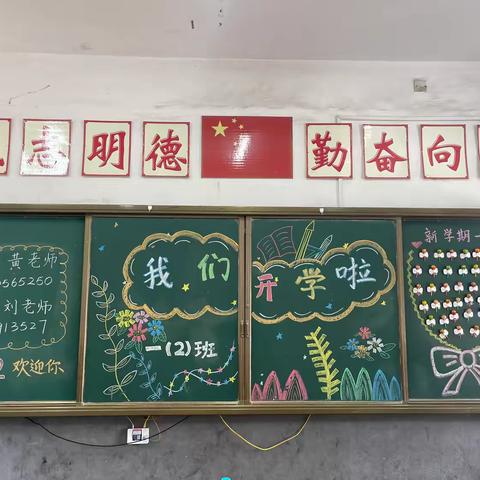 志 明 德 勤 奋 向
黄老师
565250
刘老师
913527
欢迎你
我们开学啦
一(2)班
新学期一